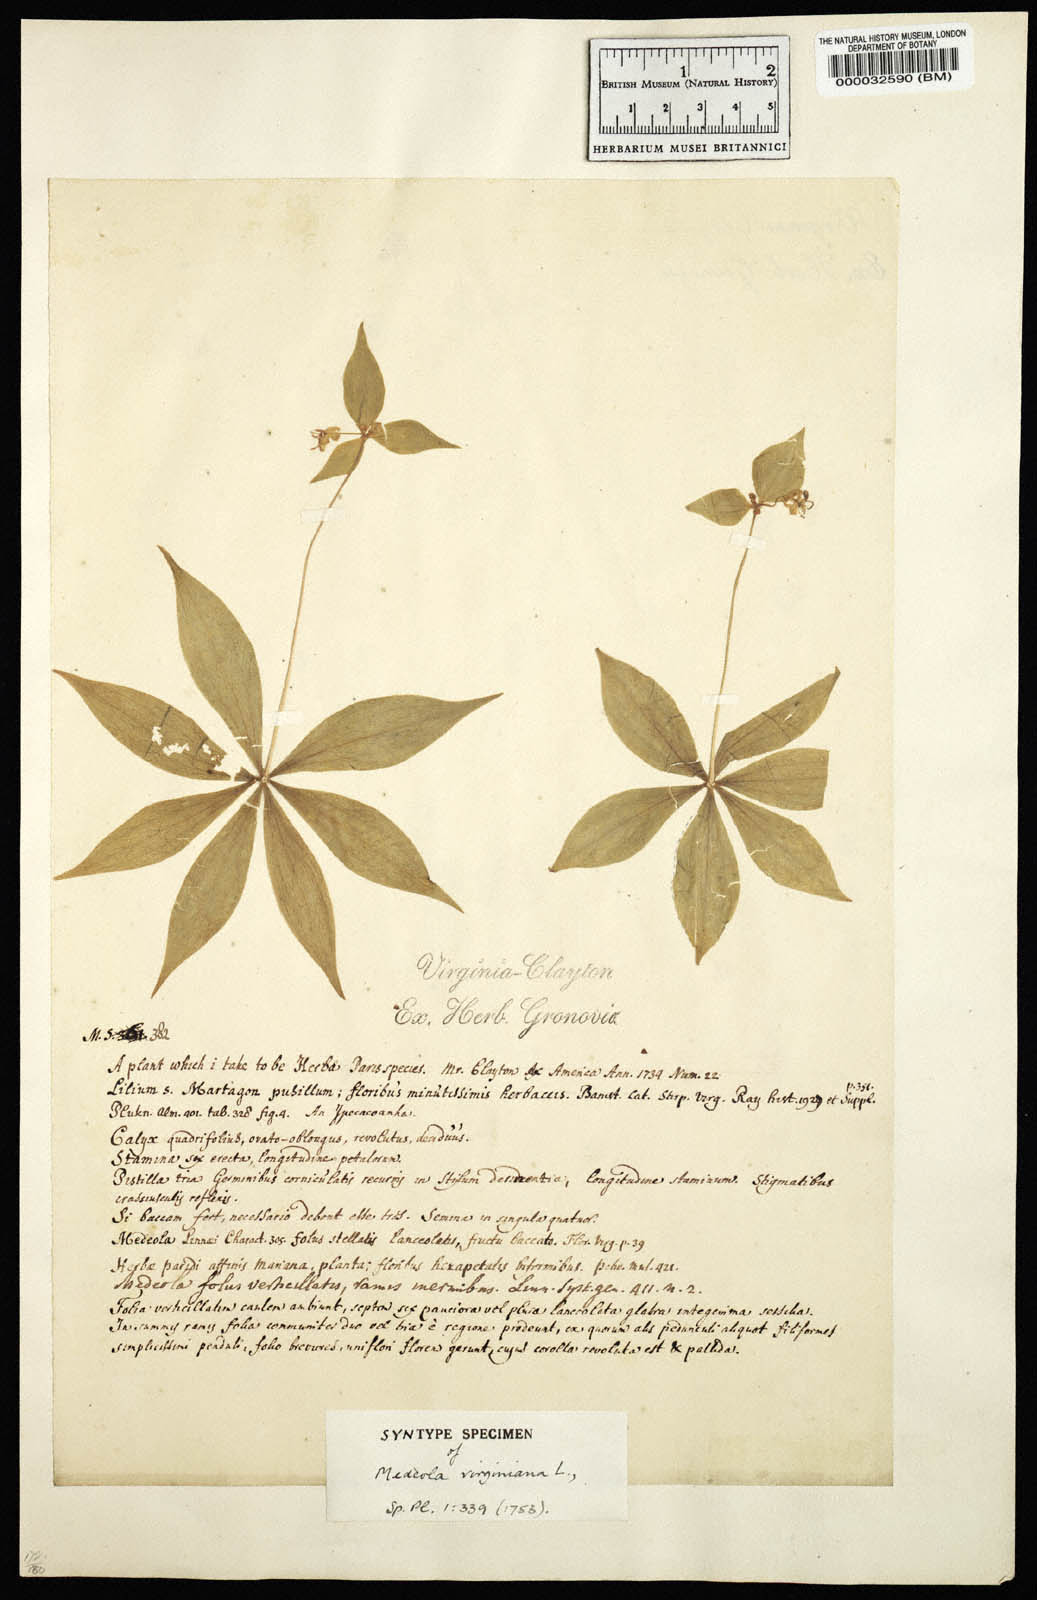 THE NATURAL HISTORY MUSEUM, LONDON
DEPARTMENT OF BOTANY
000032590 (BM)
1 2
BRITISH MUSEUM (NATURAL HISTORY)
1 2 3 4 5
HERBARIUM MUSEI BRITANNICI
Virginia-Clayton
Ex. Herb. Gronovic
M. S. 382
A plant which i take to be Herba Paris species. Mr. Clayton America Ann. 1734 Num. 22
Lilium s. Martagon pusillum; floribus minutissimis herbaceis. Banist. Cat. Stirp. Virg. Ray hist. et Suppl. p. 351.
Plukn. Alm. 401. tab. 328 fig. 4. An Ypecacoanha.
Calyx quadrifolius, ovato-oblongus, revolutus, deciduus.
Stamina sex erecta, longitudine petalorum.
Pistilla tria Germinibus corniculatis recurvis in Stylum longitudine staminum. Stigmatibus
crassiusculis reflexis.
Si baccam fert, necessario debent esse tres. Semina in singula quatuor.
Medeola Linnæi Charact. 305. foliis stellatis lanceolatis, fructu baccato. Flor. Virg. p. 39
Herbæ paridi affinis Mariana, planta; floribus hexapetalis p. hi. mul. 421.
Medeola foliis verticillatis, ramis inermibus. Linn. Syst. gen. 411. n. 2.
Folia verticillatim caulem ambiunt, septem sex pauciora vel plura lanceolata glabra integerrima sessilia.
In summis ramis folia communiter duo vel tria è regione prodeunt, ex quorum alis pedunculi aliquot filiformes
simplicissimi penduli, folio breviores, uniflori florem gerunt, cujus corolla revoluta est & pallida.
SYNTYPE SPECIMEN
of
Medeola virginiana L.,
Sp. Pl. 1: 339 (1753).